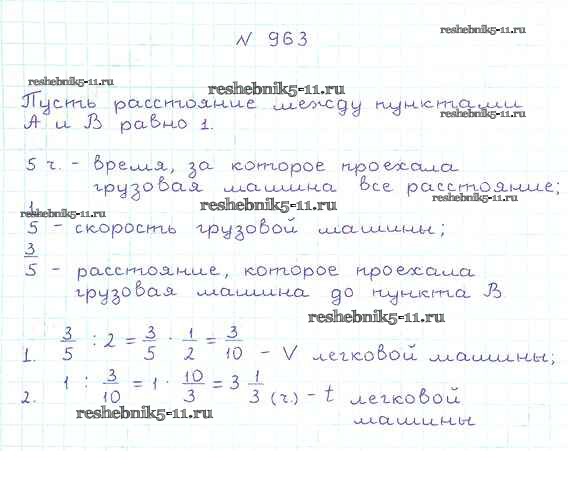 N 963
reshebnik5-11.ru
reshebnik5-11.ru
reshebnik5-11.ru
Пусть расстояние между пунктами
А и В равно 1.
reshebnik5-11.ru
5 ч. - время, за которое проехала
грузовая машина все расстояние;
1/5 - скорость грузовой машины;
reshebnik5-11.ru
reshebnik5-11.ru
reshebnik5-11.ru
3/5 - расстояние, которое проехала
грузовая машина до пункта В
reshebnik5-11.ru
1. 3/5 : 2 = 3/5 · 1/2 = 3/10 - V легковой машины;
2. 1 : 3/10 = 1 · 10/3 = 3 1/3 (ч.) - t легковой
машины
reshebnik5-11.ru